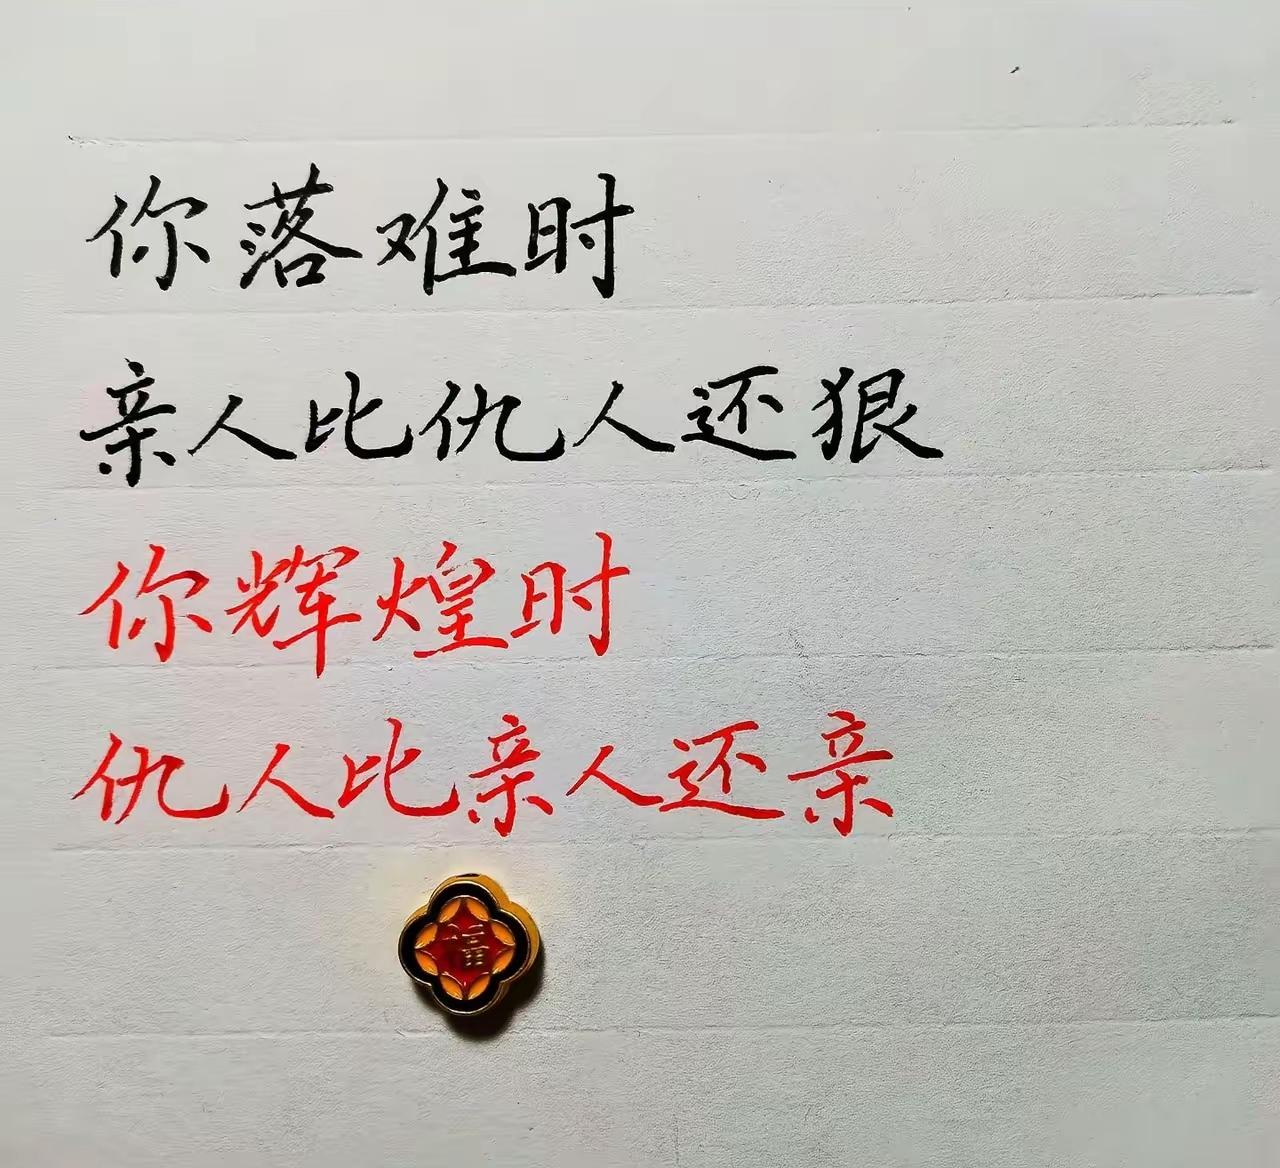 你落难时
亲人比仇人还狠
你辉煌时
仇人比亲人还亲
福